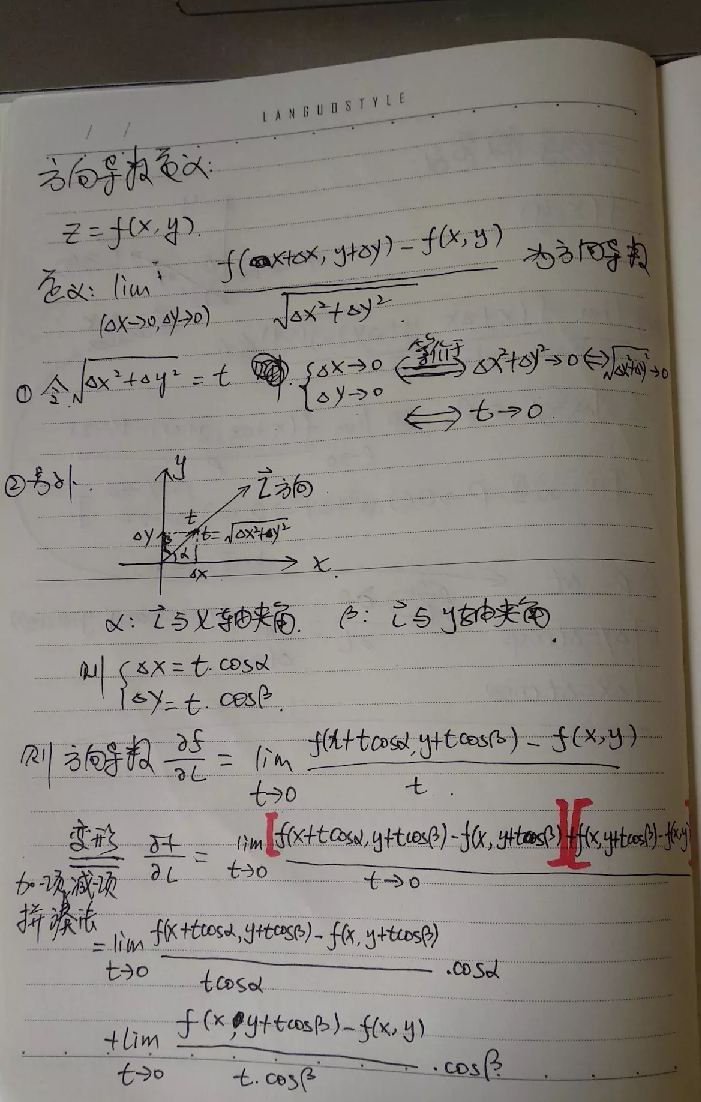 LANGUOSTYLE
方向导数定义:
z = f(x, y).
定义: lim f(x+Δx, y+Δy) - f(x, y) / √Δx²+Δy² 为方向导数
(Δx→0, Δy→0)
① 令 √Δx²+Δy² = t { Δx→0 Δy→0 ⟺ 等价于 Δx²+Δy²→0 ⟺ √Δx²+Δy²→0
⟺ t→0
② 另外.
y
l⃗方向
Δy t t=√Δx²+Δy²
α
Δx x
α: l⃗与x轴夹角. β: l⃗与y轴夹角.
则 { Δx = t·cosα
Δy = t·cosβ.
则方向导数 ∂f/∂L = lim t→0 f(x+tcosα, y+tcosβ) - f(x, y) / t.
变形 ∂f/∂L = lim t→0 [f(x+tcosα, y+tcosβ) - f(x, y+tcosβ)]+[f(x, y+tcosβ) - f(x,y)] / t→0
加一项,减一项
拼凑法
= lim t→0 f(x+tcosα, y+tcosβ) - f(x, y+tcosβ) / tcosα ·cosα
+ lim t→0 f(x, y+tcosβ) - f(x, y) / t·cosβ ·cosβ.